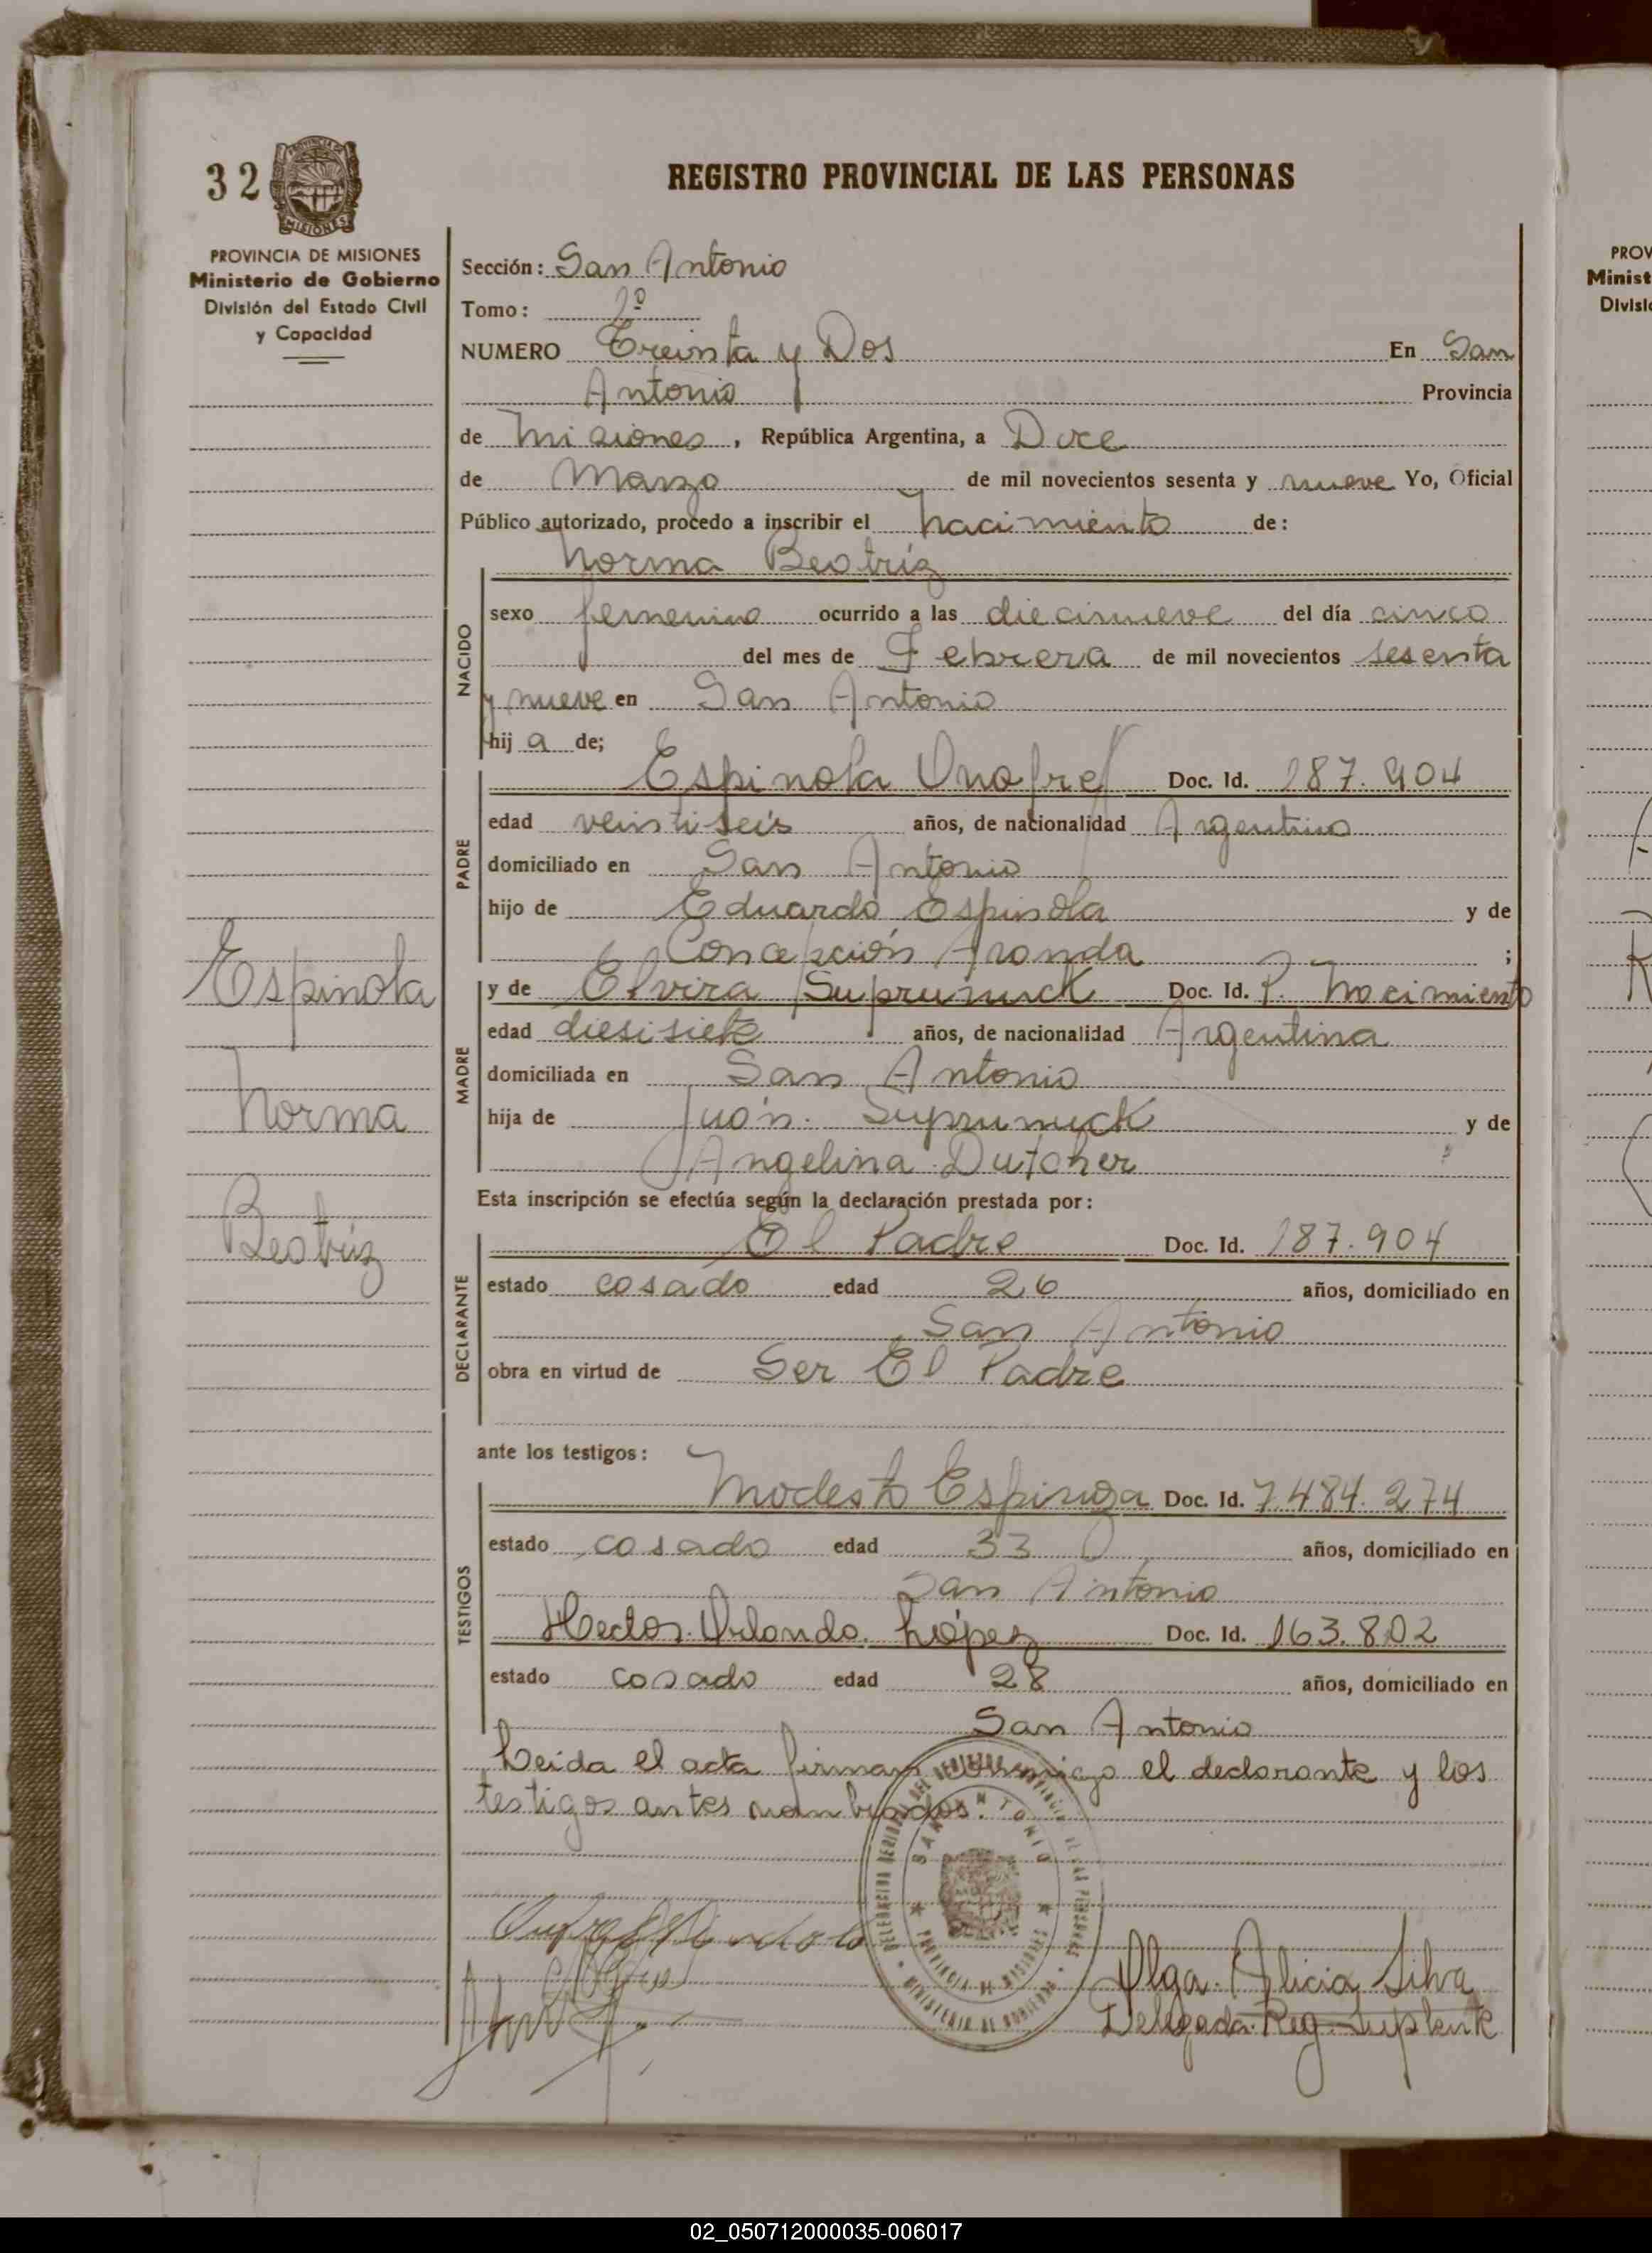 32
PROVINCIA DE MISIONES
Ministerio de Gobierno
División del Estado Civil
y Capacidad
REGISTRO PROVINCIAL DE LAS PERSONAS
Sección: San Antonio
Tomo: 1º
NUMERO Treinta y Dos En San
Antonio Provincia
de Misiones, República Argentina, a Doce
de Marzo de mil novecientos sesenta y nueve Yo, Oficial
Público autorizado, procedo a inscribir el nacimiento de:
Norma Beatríz
NACIDO
sexo femenino ocurrido a las diecinueve del día cinco
del mes de Febrero de mil novecientos sesenta
y nueve en San Antonio
hij a de;
PADRE
Espinola Onofre Doc. Id. 187.904
edad veintiseis años, de nacionalidad Argentino
domiciliado en San Antonio
hijo de Eduardo Espinola y de
Concepción Aranda ;
Espinola
MADRE
y de Elvira Suprunuck Doc. Id. P. Nacimiento
edad diesisiete años, de nacionalidad Argentina
domiciliada en San Antonio
Norma
hija de Juán Suprunuck y de
Angelina Dutcher
Esta inscripción se efectúa según la declaración prestada por:
Beatríz
DECLARANTE
El Padre Doc. Id. 187.904
estado casado edad 26 años, domiciliado en
San Antonio
obra en virtud de Ser El Padre
ante los testigos:
TESTIGOS
Modesto Doc. Id. 7.484.274
estado casado edad 33 años, domiciliado en
San Antonio
Hector Orlando López Doc. Id. 163.802
estado casado edad 28 años, domiciliado en
San Antonio
Leida el acta firman conmigo el declarante y los
testigos antes nombrados.
SAN ANTONIO
Olga Alicia Silva
Delegada Reg. Suplente
PROV
Minist
Divisi
02_050712000035-006017